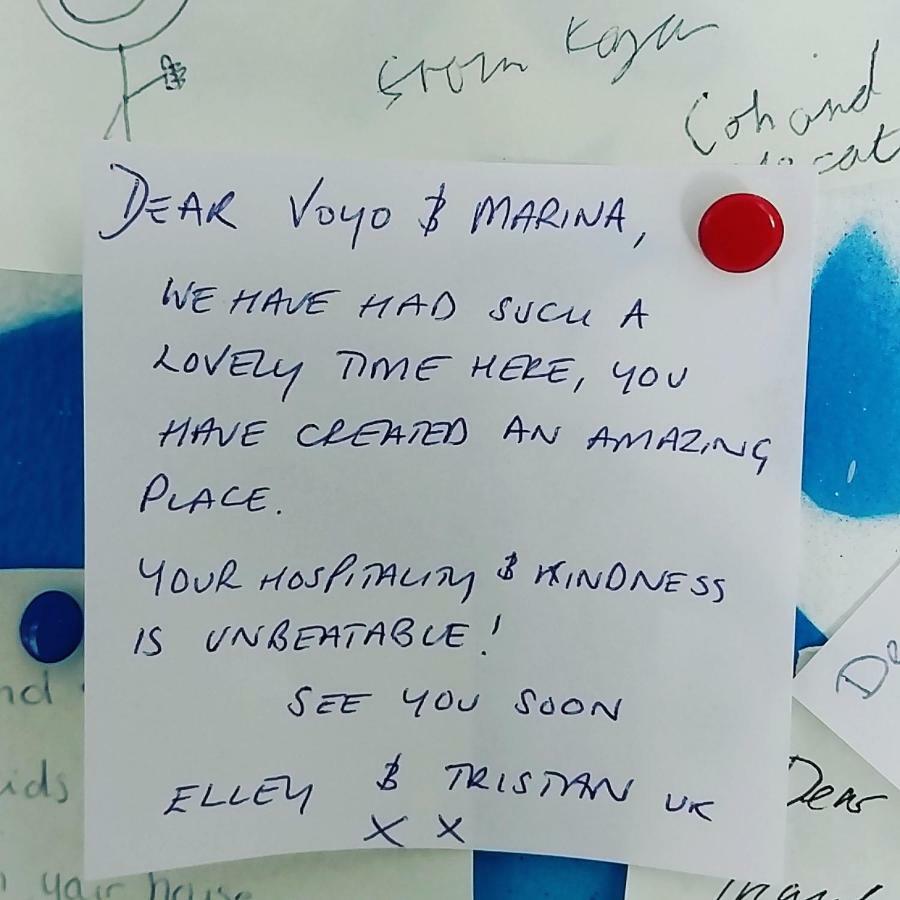 from Kaya
Coh and
DEAR VOYO & MARINA,
WE HAVE HAD SUCH A
LOVELY TIME HERE, YOU
HAVE CREATED AN AMAZING
PLACE.
YOUR HOSPITALITY & KINDNESS
IS UNBEATABLE!
SEE YOU SOON
ELLEY & TRISTAN UK
X X
De
Dear
your house